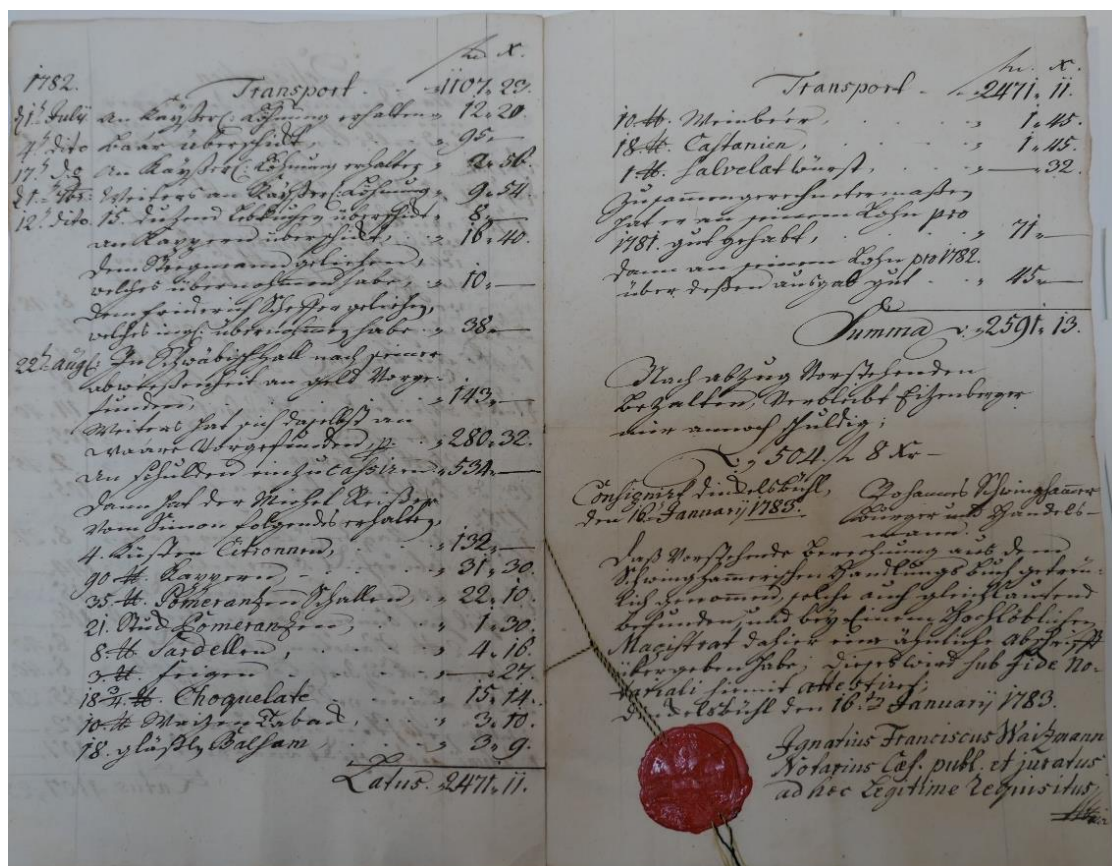 fl. x.
1782.
Transport . . „ 1107 „ 23.
d 1t July an Kayßer: Löhnung erhalten „ 12 „ 20.
4t dito baar überschickt, „ 95 „ —
17t do an Kayßer: Löhnung erhalten „ 2 „ 56.
Weiters an Kayßer: Löhnung „ 9 „ 54.
12t dito. 15. duzend Lebkuchen überschickt „ 8 „ —
an Kappern überschickt, „ 16 „ 40.
dem geliehen,
welches übernohmen habe, „ 10 „ —
dem Friderich Scheffer geliehen,
welches übernohmen habe „ 38 „ —
22t aug: In Schwäbisch Hall nach seiner
abweßenheit an geld Vorge-
funden, „ 143 „ —
Weiters hat sich daselbst an
waare Vorgefunden, p. „ 280 „ 32.
an Schulden einzucassiren „ 534 „ —
dann hat der Michel Reißer
Vom Simon folgendes erhalten,
4. Küsten Citronnen, „ 132 „ —
90 ℔. Kappern, „ 31 „ 30.
35. ℔. Pomerantzen Schallen, „ 22 „ 10.
21. Stuck Pomerantzen, „ 1 „ 30.
8. ℔ Sardellen, „ 4 „ 16.
3 ℔ feigen „ — „ 27.
18 3/4 ℔. Choquelate „ 15 „ 14.
10. ℔ Tabac, „ 3 „ 10.
18. gläßle Balsam, „ 3 „ 9.
Latus. „ 2471 „ 11.
fl. x.
Transport . . „ 2471 „ 11.
10. ℔. Weinbeer, „ 1 „ 45.
18. ℔. Castanien, „ 1 „ 45.
1 ℔. Salvelat würst, „ — „ 32.
Zusammengerechnetermaßen
hat er an seinem Lohn pro
1781. gut gehabt, „ 71 „ —
dann an seinem Lohn pro 1782.
über deßen ausgab gut „ 45 „ —
Summa „ 2591 „ 13.
Nach abzug Vorstehenden
bezalten, Verbleibt Eitzenberger
mir annoch schuldig;
„ 504 fl 8 Xr —
Consignirt dinckelsbühl, Johannes Schwinghammer
den 16. January 1783. burger und Handels-
mann.
daß Vorstehende berechnung aus dem
Schwinghammerischen Handlungs buch getreu-
lich genommen, solche auch gleichlautend
befunden, und bey Einem Hochlöblichen
Magistrat dahier eine ähnliche abschrifft
übergeben habe; dieses wird sub fide No-
tariali hiemit attestiret,
dinckelsbühl den 16.t January 1783.
Ignatius Franciscus Waitzmann
Notarius Cæs. publ. et juratus
ad hoc Legitime requisitus